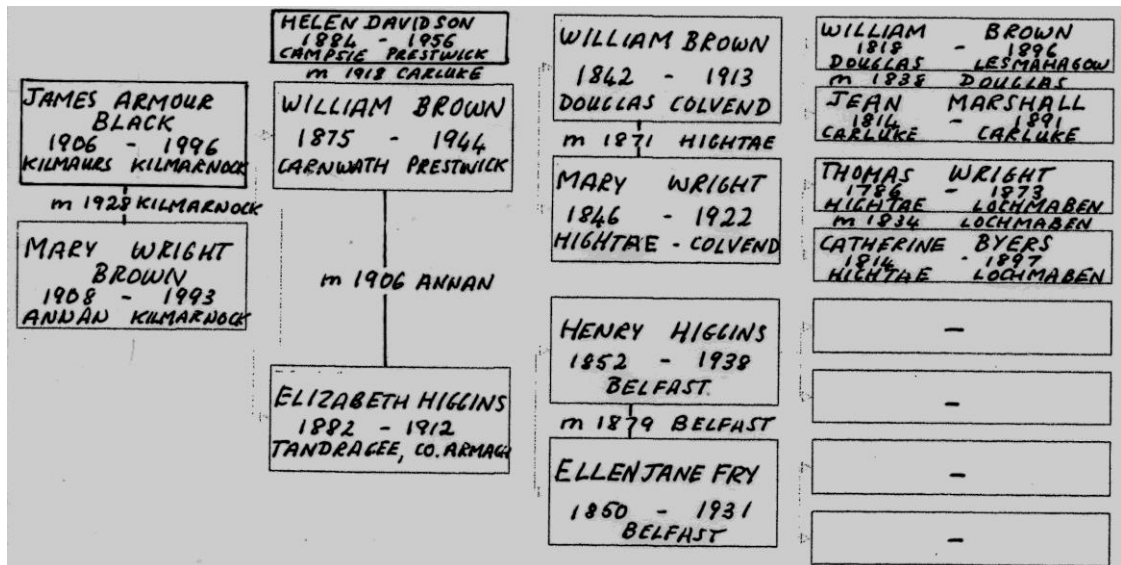 JAMES ARMOUR
BLACK
1906 - 1996
KILMAURS KILMARNOCK
m 1928 KILMARNOCK
MARY WRIGHT
BROWN
1908 - 1993
ANNAN KILMARNOCK
HELEN DAVIDSON
1884 - 1956
CAMPSIE PRESTWICK
m 1918 CARLUKE
WILLIAM BROWN
1875 - 1944
CARNWATH PRESTWICK
m 1906 ANNAN
ELIZABETH HIGGINS
1882 - 1912
TANDRAGEE, CO. ARMAGH
WILLIAM BROWN
1842 - 1913
DOUGLAS COLVEND
m 1871 HIGHTAE
MARY WRIGHT
1846 - 1922
HIGHTAE - COLVEND
HENRY HIGGINS
1852 - 1938
BELFAST
m 1879 BELFAST
ELLEN JANE FRY
1860 - 1931
BELFAST
WILLIAM BROWN
1818 - 1896
DOUGLAS LESMAHAGOW
m 1838 DOUGLAS
JEAN MARSHALL
1814 - 1891
CARLUKE CARLUKE
THOMAS WRIGHT
1786 - 1873
HIGHTAE LOCHMABEN
m 1834 LOCHMABEN
CATHERINE BYERS
1814 - 1897
HIGHTAE LOCHMABEN
-
-
-
-